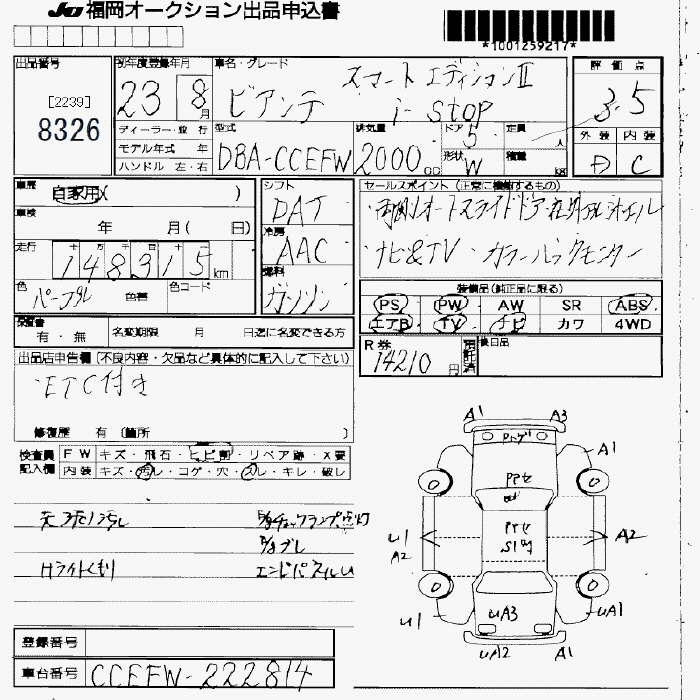 JU 福岡オークション出品申込書
*1001259217*
出品番号
[2239]
8326
初年度登録年月
23 8月
車名・グレード
スマートエディションⅡ
ビアンテ i-stop
評価点
3.5
外装 内装
D C
ディーラー・並行
モデル年式 年
ハンドル 左・右
型式
DBA-CCEFW
排気量
2000 CC
ドア 5
形状 W
定員 人
積量 kg
車歴
自家用( )
車検
年 月( 日)
走行
十 万 千 百 十
148315 km
色 パープル 色替
色コード
シフト
DAT
冷房
AAC
燃料
ガソリン
セールスポイント (正常に機能するもの)
・両側オートスライドドア・社外アルミホイル
・ナビ&TV ・カラーバックモニター
装備品(純正品に限る)
PS PW AW SR ABS
エアB TV ナビ カワ 4WD
保証書
有・無
名変期限 月 日迄に名変できる方
R券
14210 円
預託済
後日品
出品店申告欄 (不良内容・欠品など具体的に記入して下さい)
・ETC付き
修復歴 有 〔箇所 〕
検査員記入欄
FW キズ・飛石・ヒビ割・リペア跡・X要
内装 キズ・汚レ・コゲ・穴・スレ・キレ・破レ
天張り汚レ
E/gチェックランプ点灯
E/gブレ
Hライトくもり
A1 A3
A1
U1 A2
A2
U1
UA3
UA1
UA2 A1
登録番号
車台番号 CCEFW-222814